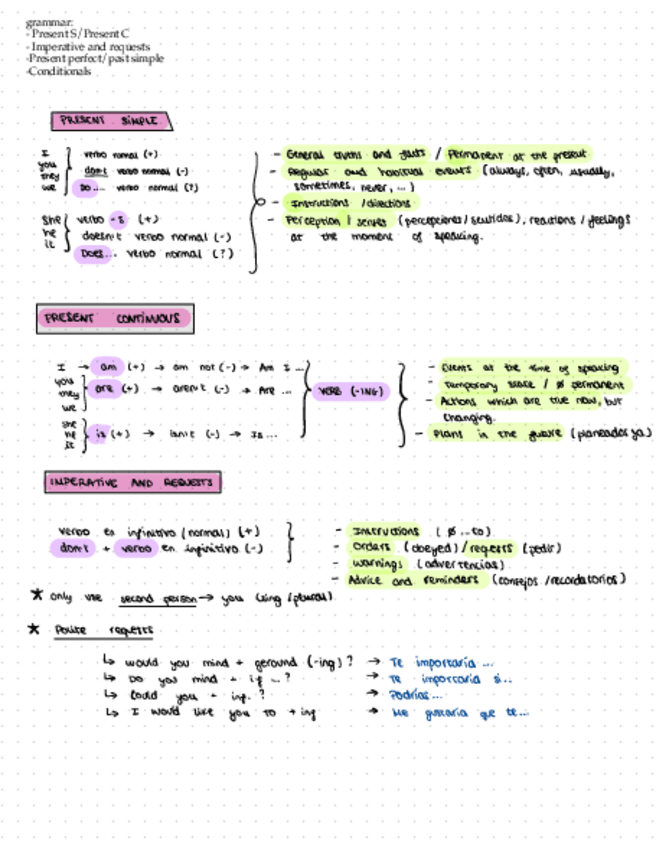 grammar:
- Present S/ Present C
- Imperative and requests
-Present perfect/ past simple
-Conditionals
PRESENT SIMPLE
I
you
they
we
verbo normal (+)
don't verbo normal (-)
Do... verbo normal (?)
She
he
it
verbo -s (+)
doesn't verbo normal (-)
Does... verbo normal (?)
- General truths and facts / Permanent at the present
- Regular and habitual events (always, often, usually,
sometimes, never, ...)
- Instructions /directions
- Perception / senses (percepciones/sentidos), reactions / feelings
at the moment of speaking.
PRESENT CONTINUOUS
I → am (+) → am not (-) → Am I ...
you
they
we
are (+) → aren't (-) → Are ...
she
he
it
is (+) → isn't (-) → Is...
VERB (-ING)
- Events at the time of speaking
- Temporary state / ø permanent
- Actions which are true now, but
changing.
- Plans in the future (planeados ya)
IMPERATIVE AND REQUESTS
verbo en infinitivo (normal) (+)
don't + verbo en infinitivo (-)
- Instructions ( ø ...to)
- Orders (obeyed) / requests (pedir)
- Warnings (advertencias)
- Advice and reminders (consejos /recordatorios)
* only use second person → you (sing/plural)
* Polite requests
↳ would you mind + gerund (-ing) ? → Te importaría ...
↳ Do you mind + if ...? → Te importaría si..
↳ Could you + inf. ? → Podrías...
↳ I would like you to + inf → Me gustaría que te...